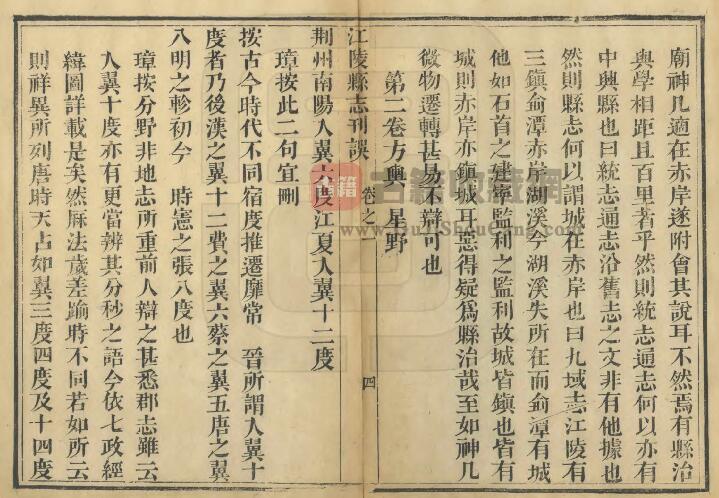 廟神几適在赤岸遂附會其說耳不然焉有縣治
與學相距且百里者乎然則統志通志何以亦有
中興縣也曰統志通志沿舊志之文非有他據也
然則縣志何以謂城在赤岸也曰九域志江陵有
三鎮俞潭赤岸湖溪今湖溪失所在而俞潭有城
他如石首之建寧監利之監利故城皆鎮也皆有
城則赤岸亦鎮城耳惡得疑為縣治哉至如神几
微物遷轉甚易不辯可也
第二卷方輿 星野
江陵縣志刊誤 卷之一 四
荆州南陽入翼六度江夏入翼十二度
璋按此二句宜刪
按古今時代不同宿度推遷靡常 晉所謂入翼十
度者乃後漢之翼十二費之翼六蔡之翼五唐之翼
八明之軫初今 時憲之張八度也
璋按分野非地志所重前人辯之甚悉郡志雖云
入翼十度亦有更當辨其分秒之語今依七政經
緯圖詳載是矣然厤法歲差踰時不同若如所云
則祥異所列唐時天占如翼三度四度及十四度
古籍收藏網